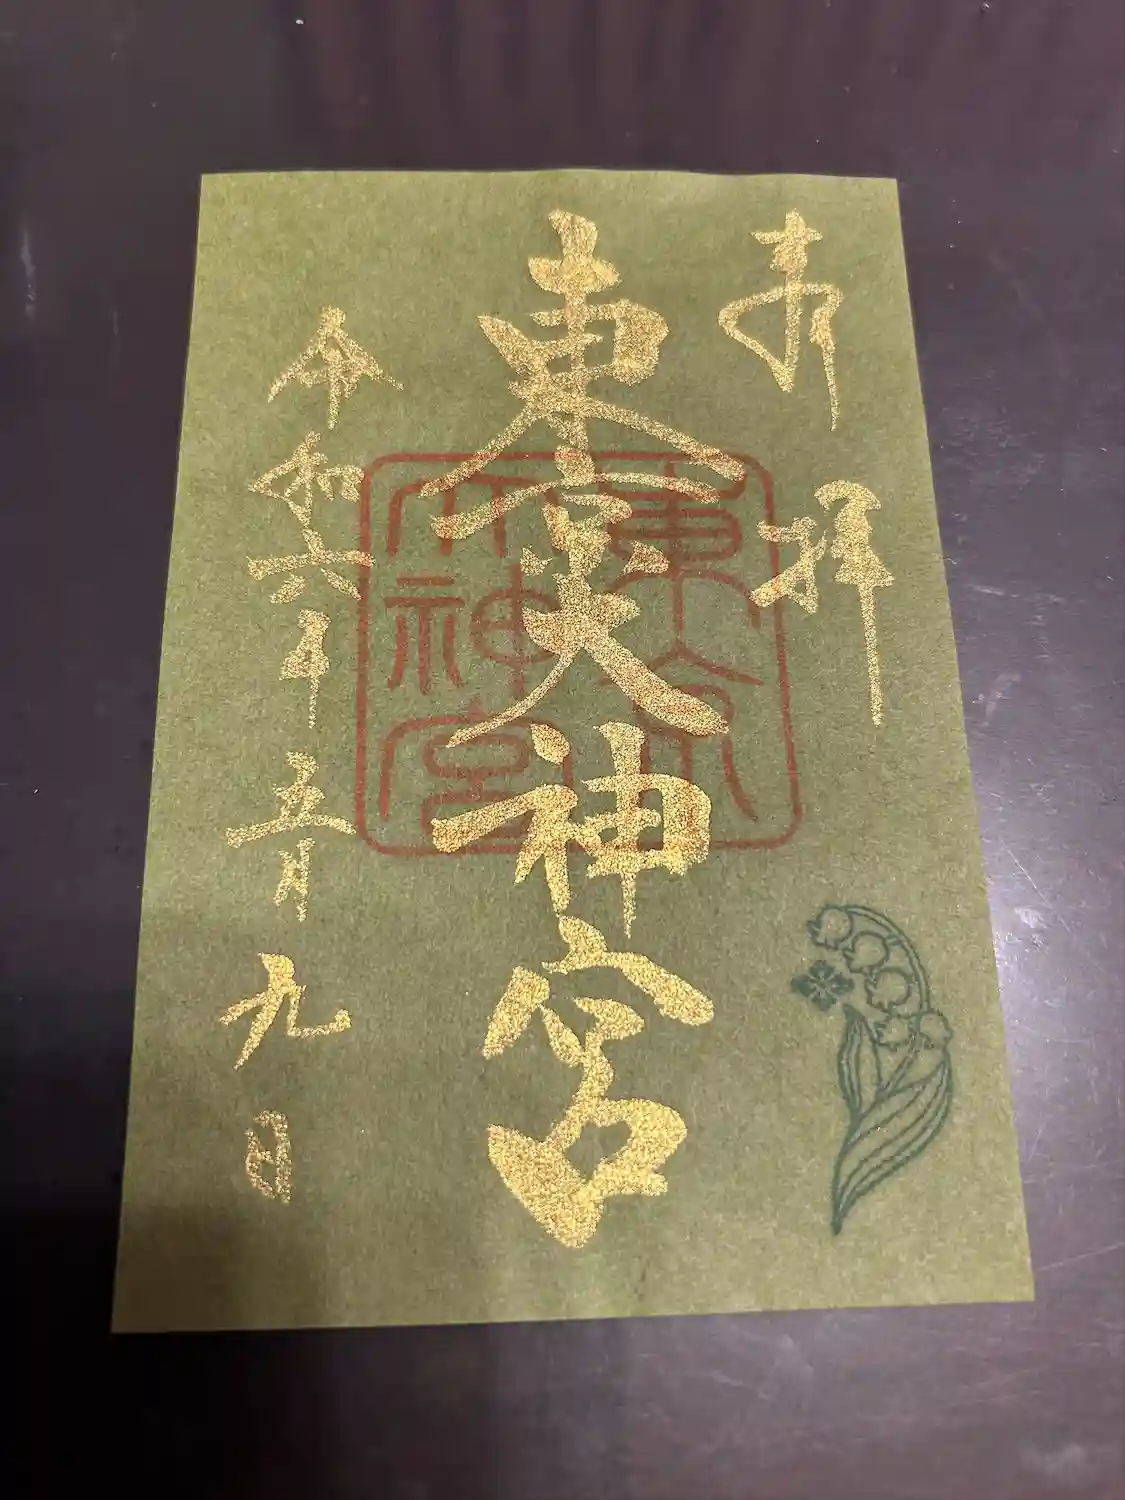 奉拝
東京大神宮
令和六年五月九日
東京大神宮